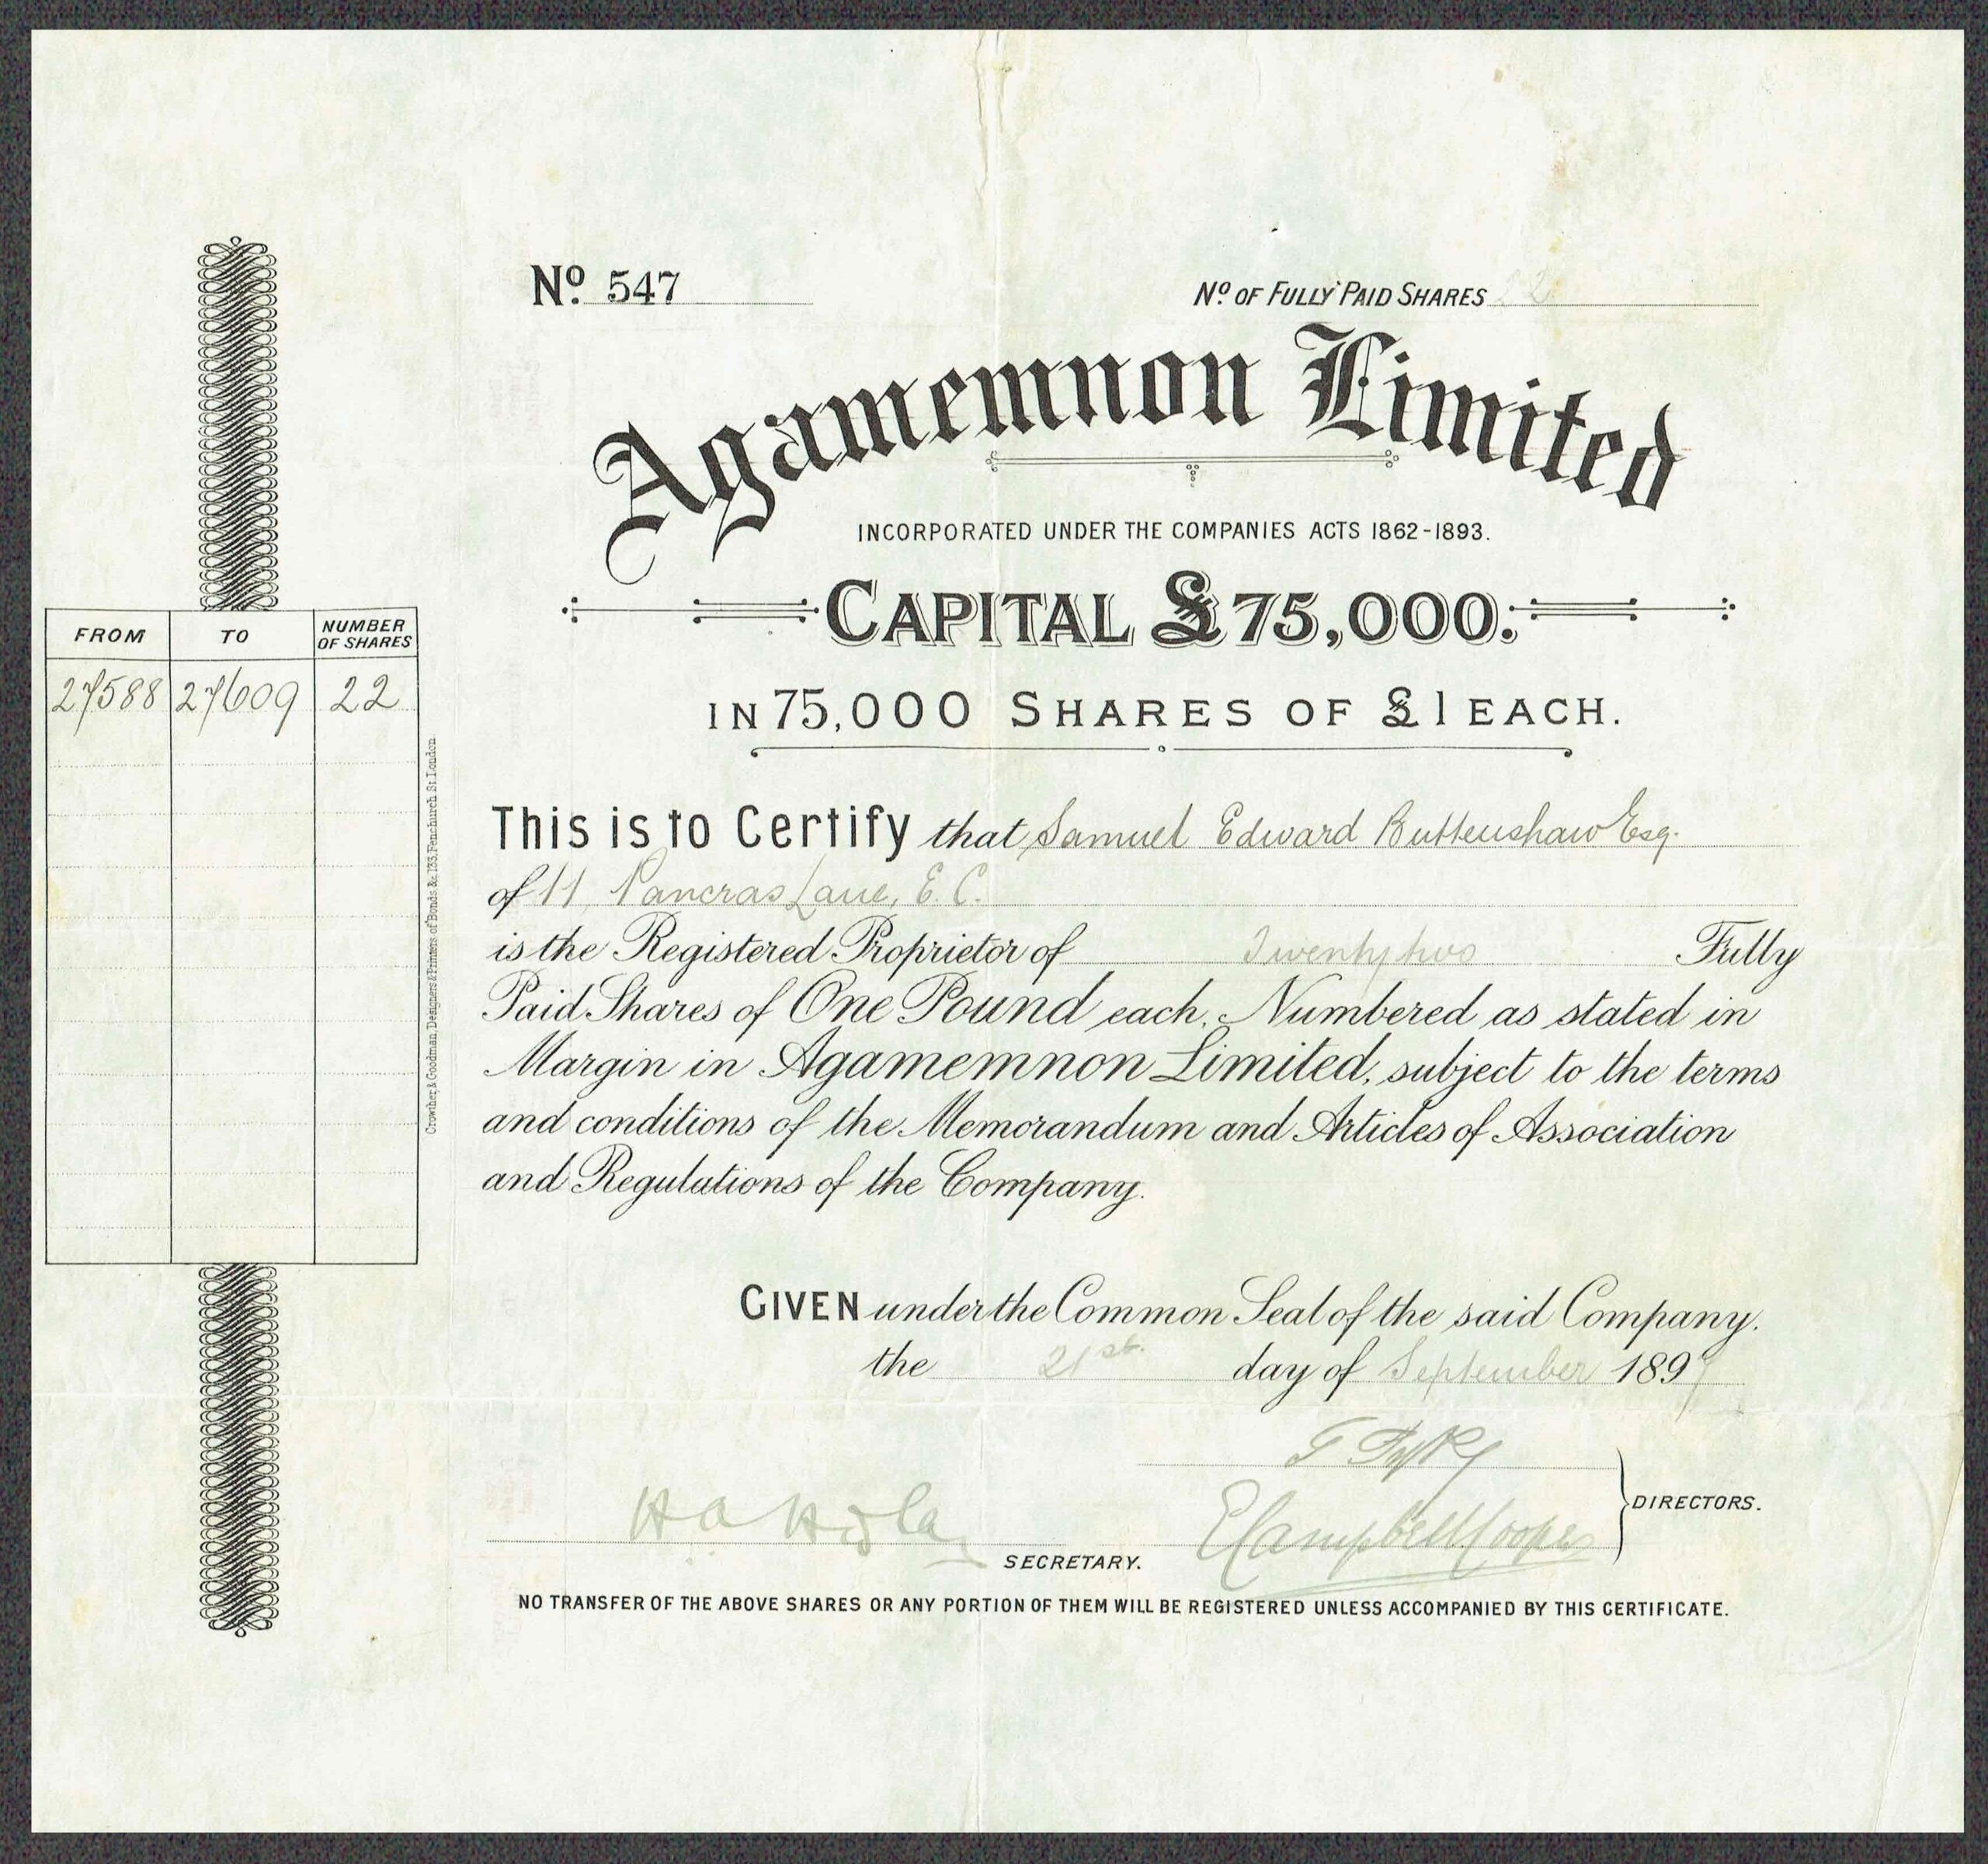 Nº 547
Nº OF FULLY PAID SHARES 22
Agamemnon Limited
INCORPORATED UNDER THE COMPANIES ACTS 1862-1893.
CAPITAL £75,000.
IN 75,000 SHARES OF £1 EACH.
FROM TO NUMBER OF SHARES
27588 27609 22
Crowther & Goodman, Designers & Printers of Bonds &c 135, Fenchurch St London
This is to Certify that Samuel Edward Buttenshaw Esq.
of 11, Pancras Lane, E.C.
is the Registered Proprietor of Twenty two Fully
Paid Shares of One Pound each, Numbered as stated in
Margin in Agamemnon Limited, subject to the terms
and conditions of the Memorandum and Articles of Association
and Regulations of the Company.
GIVEN under the Common Seal of the said Company.
the 21st. day of September 1897
E Campbell Cooper
DIRECTORS.
SECRETARY.
NO TRANSFER OF THE ABOVE SHARES OR ANY PORTION OF THEM WILL BE REGISTERED UNLESS ACCOMPANIED BY THIS CERTIFICATE.